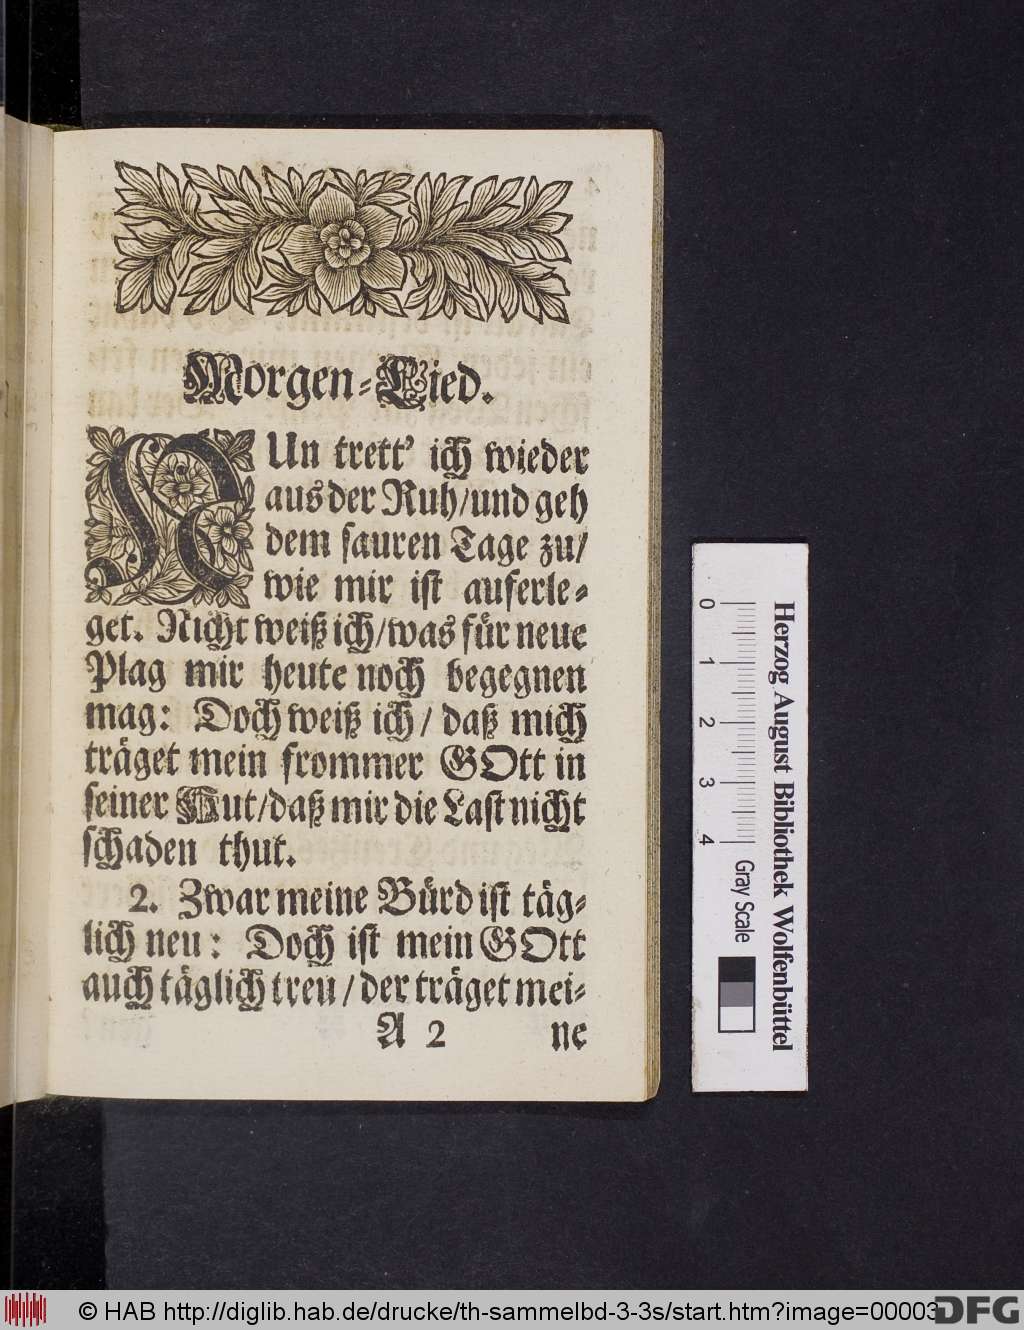 Morgen-Lied.
NUn trett' ich wieder
aus der Ruh/und geh
dem sauren Tage zu/
wie mir ist auferle-
get. Nicht weiß ich/was für neue
Plag mir heute noch begegnen
mag: Doch weiß ich/ daß mich
träget mein frommer GOtt in
seiner Hut/daß mir die Last nicht
schaden thut.
2. Zwar meine Bürd ist täg-
lich neu: Doch ist mein GOtt
auch täglich treu/der träget mei-
A 2 ne
Herzog August Bibliothek Wolfenbüttel
0 1 2 3 4 Gray Scale
© HAB http://diglib.hab.de/drucke/th-sammelbd-3-3s/start.htm?image=00003
DFG